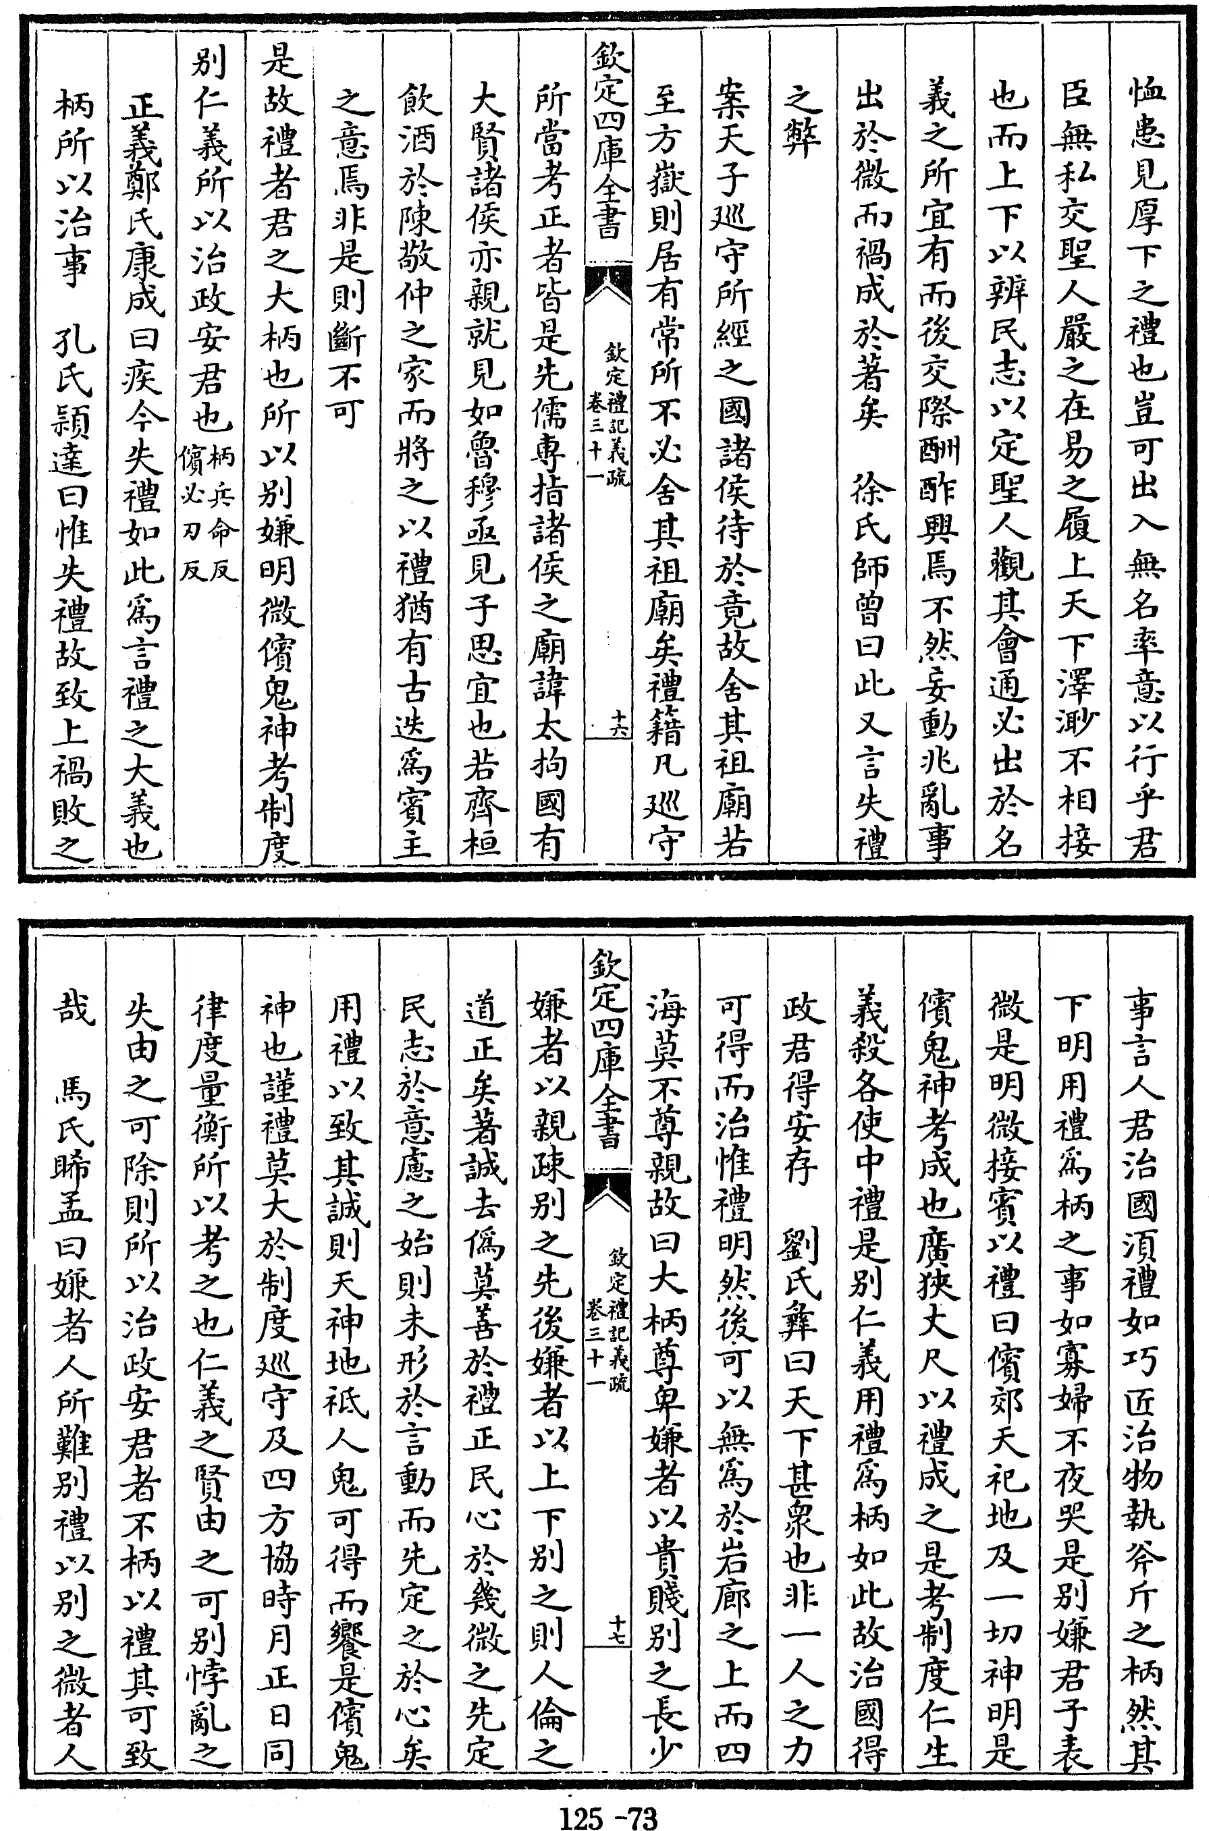 恤患見厚下之禮也豈可出入無名率意以行乎君
臣無私交聖人嚴之在易之履上天下澤渺不相接
也而上下以辨民志以定聖人觀其會通必出於名
義之所宜有而後交際酬酢興焉不然妄動兆亂事
出於微而禍成於著矣　徐氏師曾曰此又言失禮
之弊
案天子巡守所經之國諸侯待於竟故舍其祖廟若
至方嶽則居有常所不必舍其祖廟矣禮籍凡巡守
欽定四庫全書
欽定禮記義疏
卷三十一
十六
所當考正者皆是先儒專指諸侯之廟諱太拘國有
大賢諸侯亦親就見如魯穆亟見子思宜也若齊桓
飲酒於陳敬仲之家而將之以禮猶有古迭為賓主
之意焉非是則斷不可
是故禮者君之大柄也所以別嫌明微儐鬼神考制度
別仁義所以治政安君也柄兵命反
儐必刃反
正義鄭氏康成曰疾今失禮如此為言禮之大義也
柄所以治事　孔氏穎達曰惟失禮故致上禍敗之
事言人君治國須禮如巧匠治物執斧斤之柄然其
下明用禮為柄之事如寡婦不夜哭是別嫌君子表
微是明微接賓以禮曰儐郊天祀地及一切神明是
儐鬼神考成也廣狹丈尺以禮成之是考制度仁生
義殺各使中禮是別仁義用禮為柄如此故治國得
政君得安存　劉氏彝曰天下甚衆也非一人之力
可得而治惟禮明然後可以無為於岩廊之上而四
海莫不尊親故曰大柄尊卑嫌者以貴賤別之長少
欽定四庫全書
欽定禮記義疏
卷三十一
十七
嫌者以親疎別之先後嫌者以上下別之則人倫之
道正矣著誠去偽莫善於禮正民心於幾微之先定
民志於意慮之始則未形於言動而先定之於心矣
用禮以致其誠則天神地祇人鬼可得而饗是儐鬼
神也謹禮莫大於制度巡守及四方協時月正日同
律度量衡所以考之也仁義之賢由之可別悖亂之
失由之可除則所以治政安君者不柄以禮其可致
哉　馬氏睎孟曰嫌者人所難別禮以別之微者人
125-73